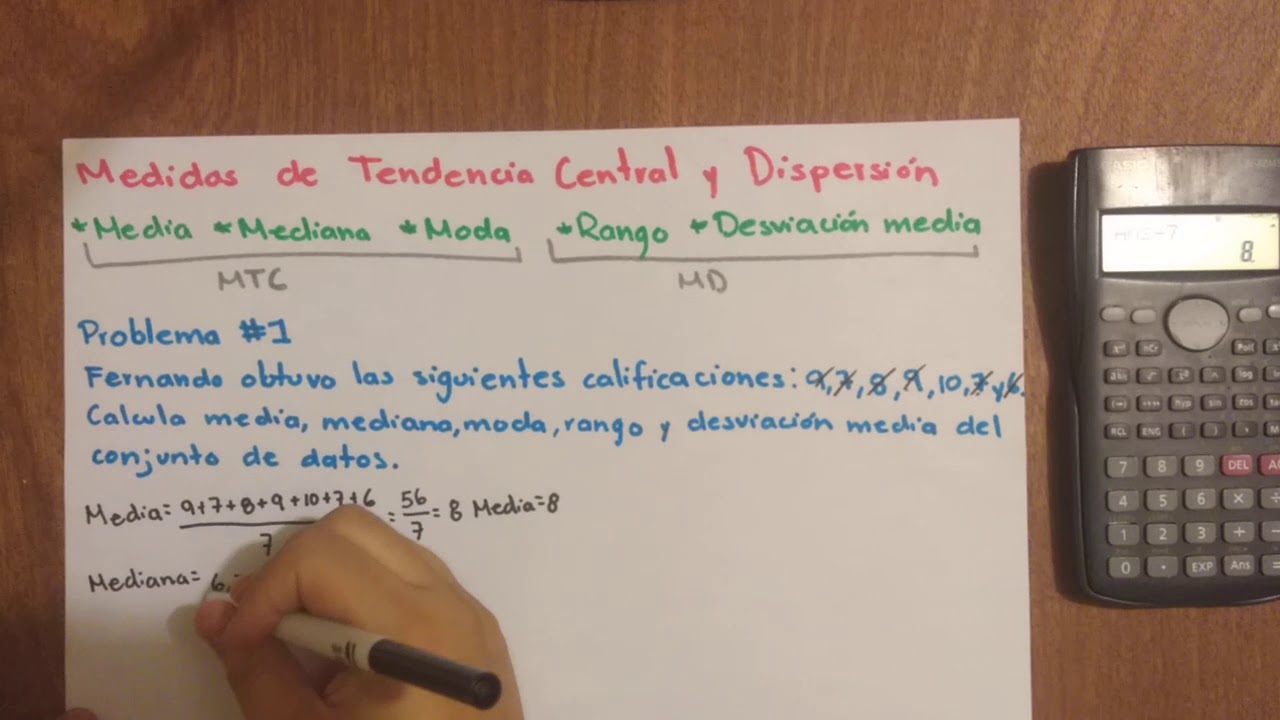 Medidas de Tendencia Central y Dispersión
*Media *Mediana *Moda *Rango *Desviación media
MTC MD
Problema #1
Fernando obtuvo las siguientes calificaciones: 9,7,8,9,10,7 y 6.
Calcula media, mediana, moda, rango y desviación media del
conjunto de datos.
Media= 9+7+8+9+10+7+6 = 56 = 8 Media=8
7 7
Mediana= 6,
8.
nCr Pol(
hyp sin cos
RCL ENG ( ) ,
7 8 9 DEL
4 5 6 ×
1 2 3 +
0 . EXP Ans =